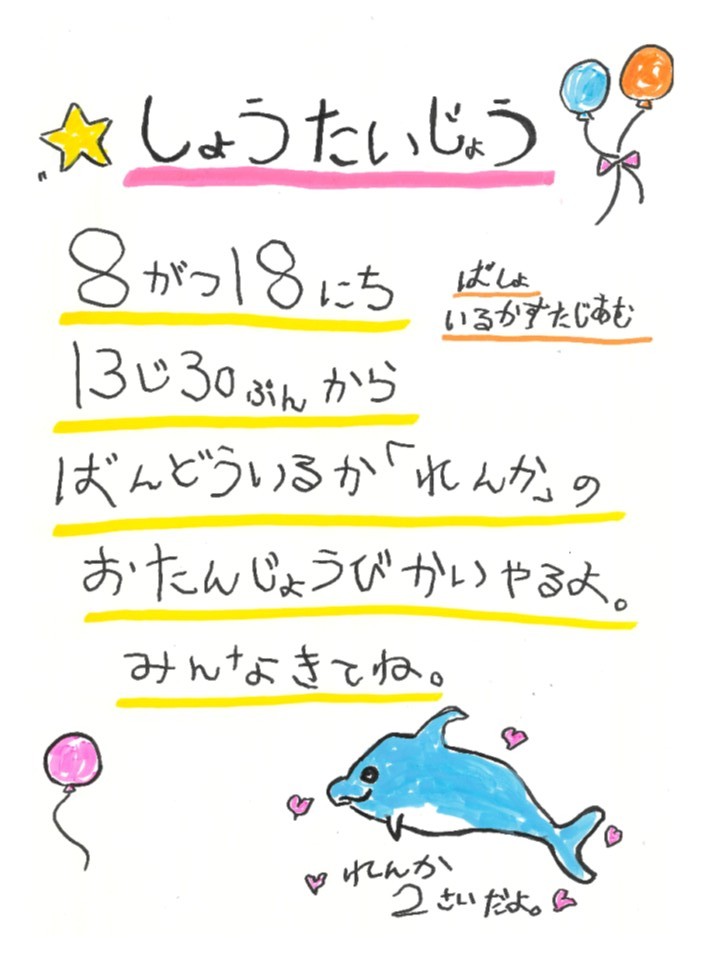 しょうたいじょう
8がつ18にち
ばしょ
いるかすたじあむ
13じ30ぷんから
ばんどういるか「れんか」の
おたんじょうびかいやるよ。
みんなきてね。
れんか
2さいだよ。